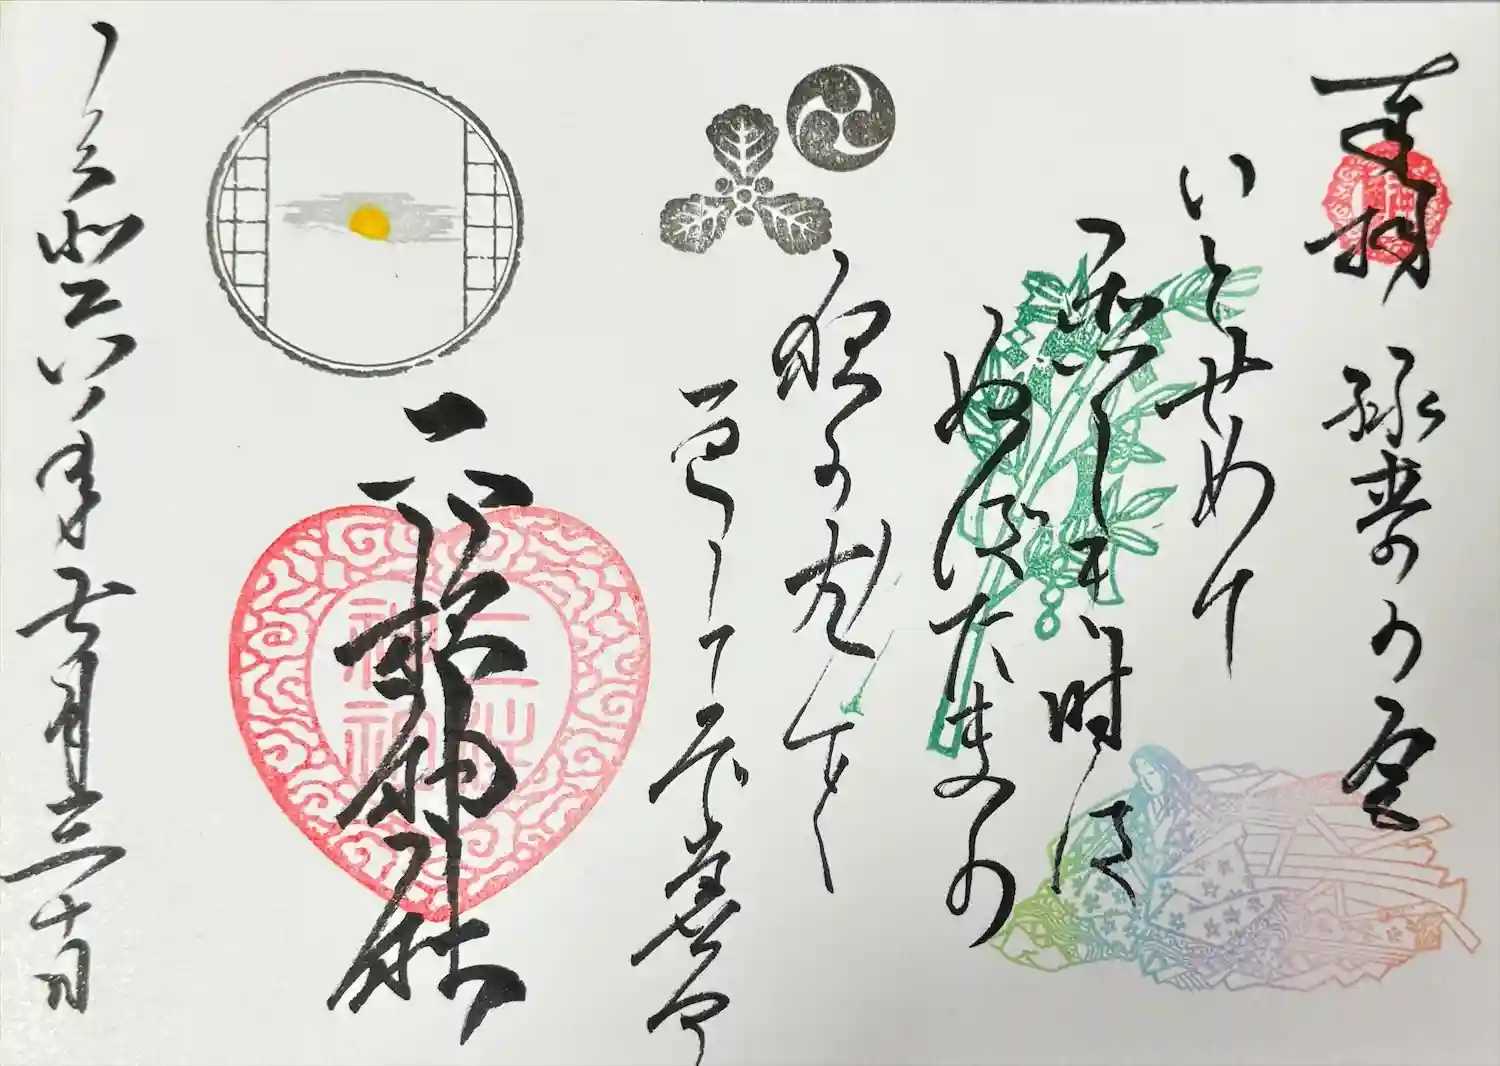 奉拝
いとせめて
恋しき時は
ぬばたまの
夜の衣を
返してぞ着る
二柱神社
二柱
神社
令和六年七月三十日